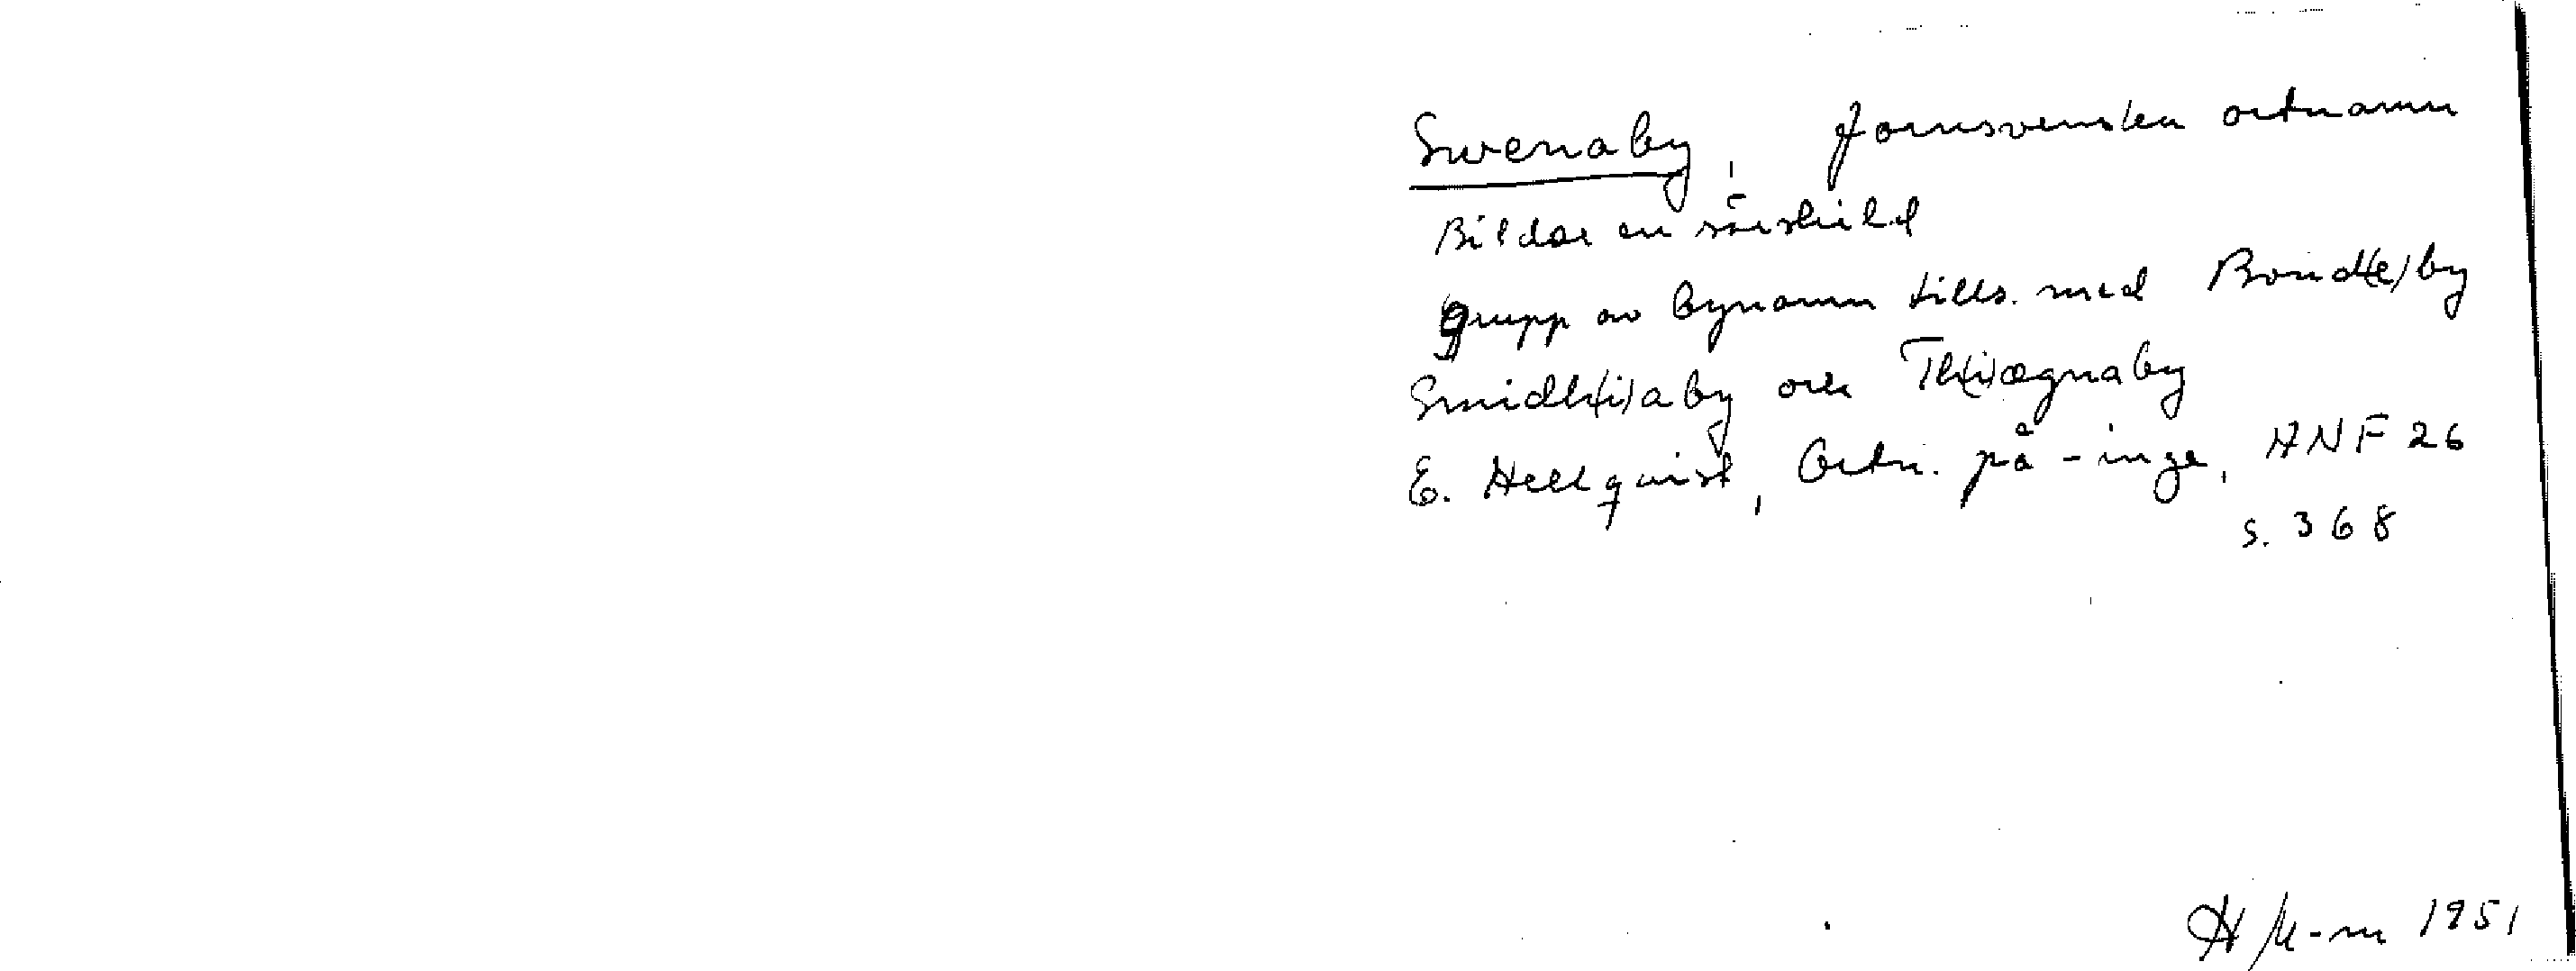 Swenaby, fornsvenska ortnamn
Bildar en särskild
grupp av bynamn tills. med Bond(e)by
Smidh(i)aby och Th(i)ægnaby
E. Hellquist, Ortn. på -inge, ANF 26
s. 368
H M-m 1951